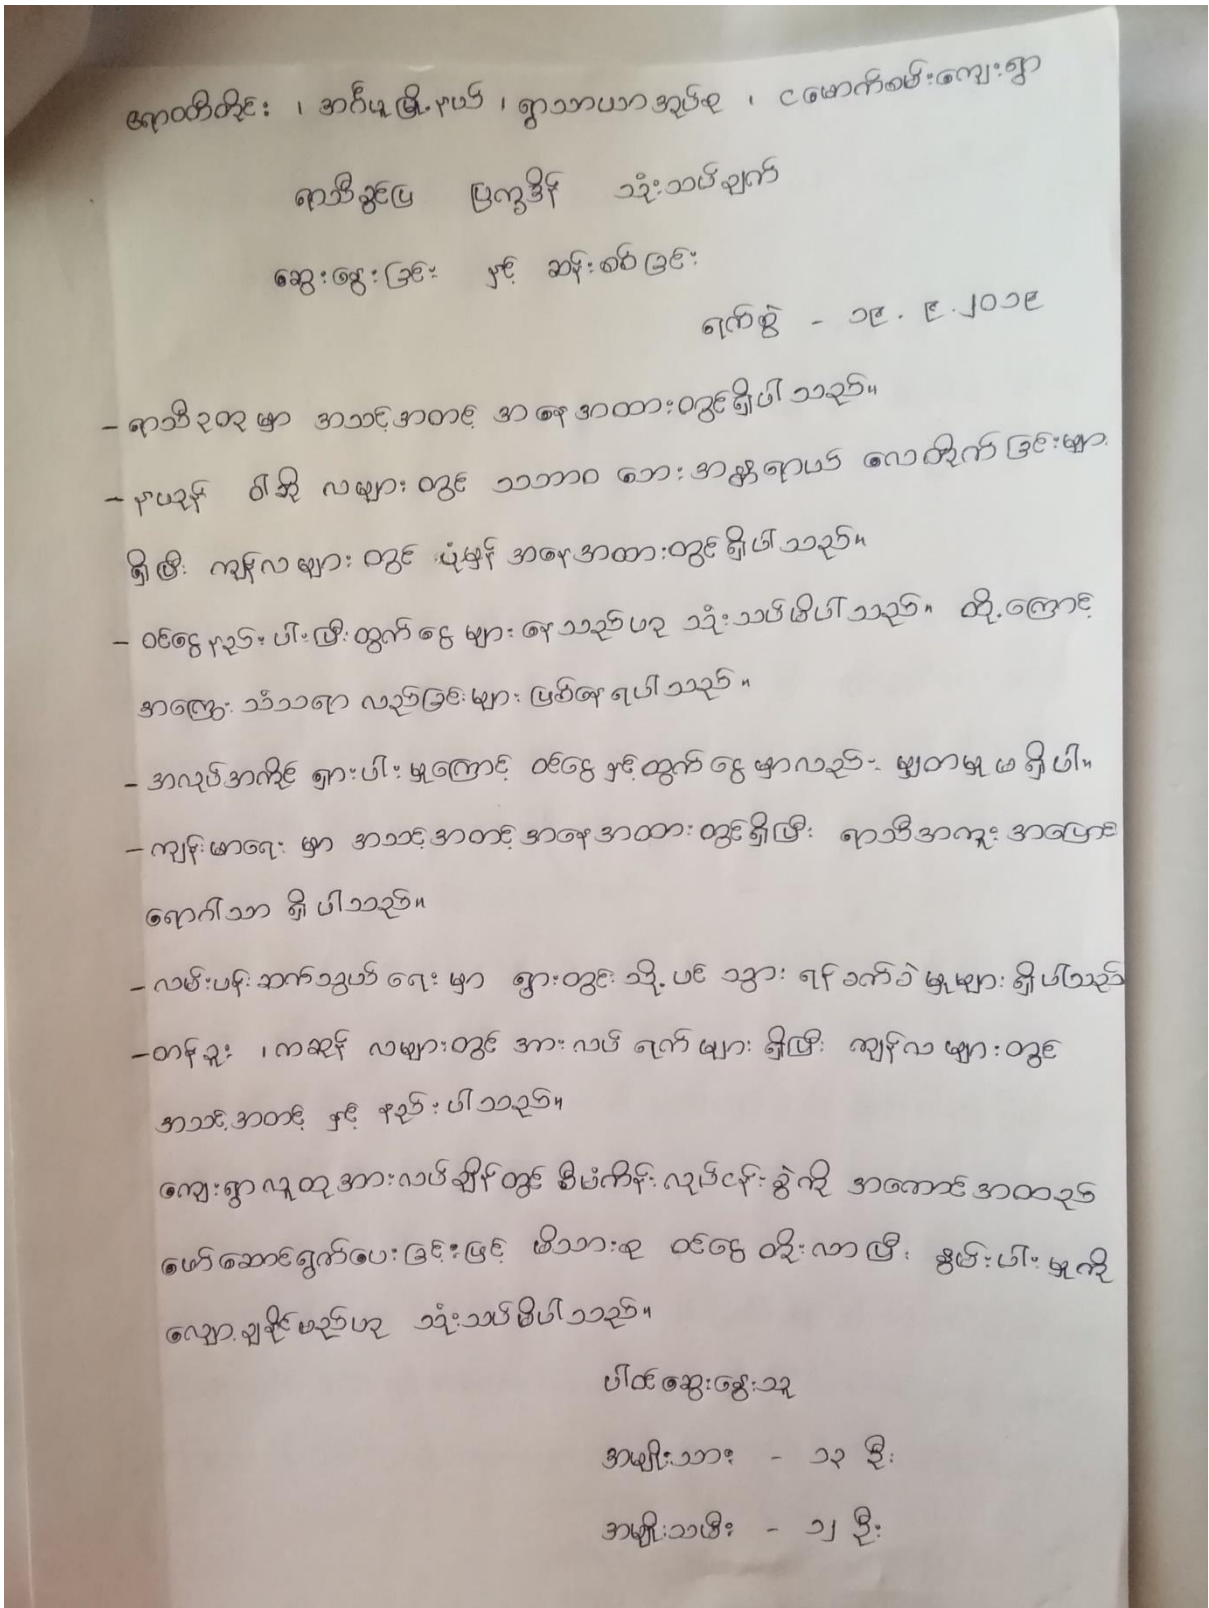 ဧရာဝတီတိုင်း ၊ အင်္ဂပူမြို့နယ် ၊ ရွာသာယာအုပ်စု ၊ ငမောက်စမ်းကျေးရွာ
ရာသီခွင်ပြ ပြက္ခဒိန် သုံးသပ်ချက်
ဆွေးနွေးခြင်း နှင့် ဆန်းစစ်ခြင်း
ရက်စွဲ - ၁၉.၉.၂၀၁၉
- ရာသီဥတုမှာ အသင့်အတင့် အနေအထားတွင်ရှိပါသည်။
- နယုန် ဝါဆို လများတွင် သဘာဝ ဘေးအန္တရာယ် လေတိုက်ခြင်းများ
ရှိပြီး ကျန်လများတွင် ပုံမှန် အနေအထားတွင်ရှိပါသည်။
- ဝင်ငွေနည်းပါးပြီးထွက်ငွေများနေသည်ဟု သုံးသပ်မိပါသည်။ ထို့ကြောင့်
အကြွေးသံသရာ လည်ခြင်းများ ဖြစ်နေရပါသည်။
- အလုပ်အကိုင် ရှားပါးမှုကြောင့် ဝင်ငွေနှင့်ထွက်ငွေမှာလည်း မျှတမှုမရှိပါ။
- ကျန်းမာရေးမှာ အသင့်အတင့်အနေအထားတွင်ရှိပြီး ရာသီအကူးအပြောင်း
ရောဂါသာ ရှိပါသည်။
- လမ်းပန်းဆက်သွယ်ရေးမှာ ရွာတွင်းသို့ပင် သွားရန်ခက်ခဲမှုများရှိပါသည်
- တန်ခူး ၊ ကဆုန် လများတွင် အားလပ်ရက်များရှိပြီး ကျန်လများတွင်
အသင့်အတင့် နှင့် နည်းပါသည်။
ကျေးရွာလူထုအားလပ်ချိန်တွင် စီမံကိန်းလုပ်ငန်းစွဲကို အကောင်အထည်
ဖော်ဆောင်ရွက်ပေးခြင်းဖြင့် မိသားစု ဝင်ငွေတိုးလာပြီး နွမ်းပါးမှုကို
လျော့ချနိုင်မည်ဟု သုံးသပ်မိပါသည်။
ပါဝင်ဆွေးနွေးသူ
အမျိုးသား - ၁၃ ဦး
အမျိုးသမီး - ၁၂ ဦး